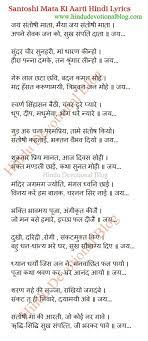 Santoshi Mata Ki Aarti Hindi Lyrics
www.hindudevotionalblog.com
जय संतोषी माता, मैया जय संतोषी माता ।
अपने सेवक जन को, सुख संपति दाता ॥ जय...
सुंदर चीर सुनहरी, मां धारण कीन्हों ।
हीरा पन्ना दमके, तन श्रृंगार लीन्हों ॥ जय...
गेरू लाल छटा छवि, बदन कमल सोहे ।
मंद हंसत करुणामयी, त्रिभुवन जन मोहे ॥ जय...
स्वर्ण सिंहासन बैठी, चंवर ढुरे प्यारे ।
धूप, दीप, मधुमेवा, भोग धरें न्यारे ॥ जय...
गुड़ अरु चना परमप्रिय, तामे संतोष कियो।
संतोषी कहलाई, भक्तन वैभव दियो ॥ जय...
शुक्रवार प्रिय मानत, आज दिवस सोही ।
भक्त मण्डली छाई, कथा सुनत मोही ॥ जय...
Hindu Devotional Blog
मंदिर जगमग ज्योति, मंगल ध्वनि छाई ।
विनय करें हम बालक, चरनन सिर नाई ॥ जय...
भक्ति भावमय पूजा, अंगीकृत कीजै ।
जो मन बसे हमारे, इच्छा फल दीजै ॥ जय...
दुखी, दरिद्री ,रोगी , संकटमुक्त किए ।
बहु धन-धान्य भरे घर, सुख सौभाग्य दिए ॥ जय...
ध्यान धर्यो जिस जन ने, मनवांछित फल पायो ।
पूजा कथा श्रवण कर, घर आनंद आयो ॥ जय...
शरण गहे की लज्जा, राखियो जगदंबे ।
संकट तू ही निवारे, दयामयी अंबे ॥ जय...
संतोषी मां की आरती, जो कोई नर गावे ।
ऋद्धि-सिद्धि सुख संपत्ति, जी भरकर पावे ॥ जय...